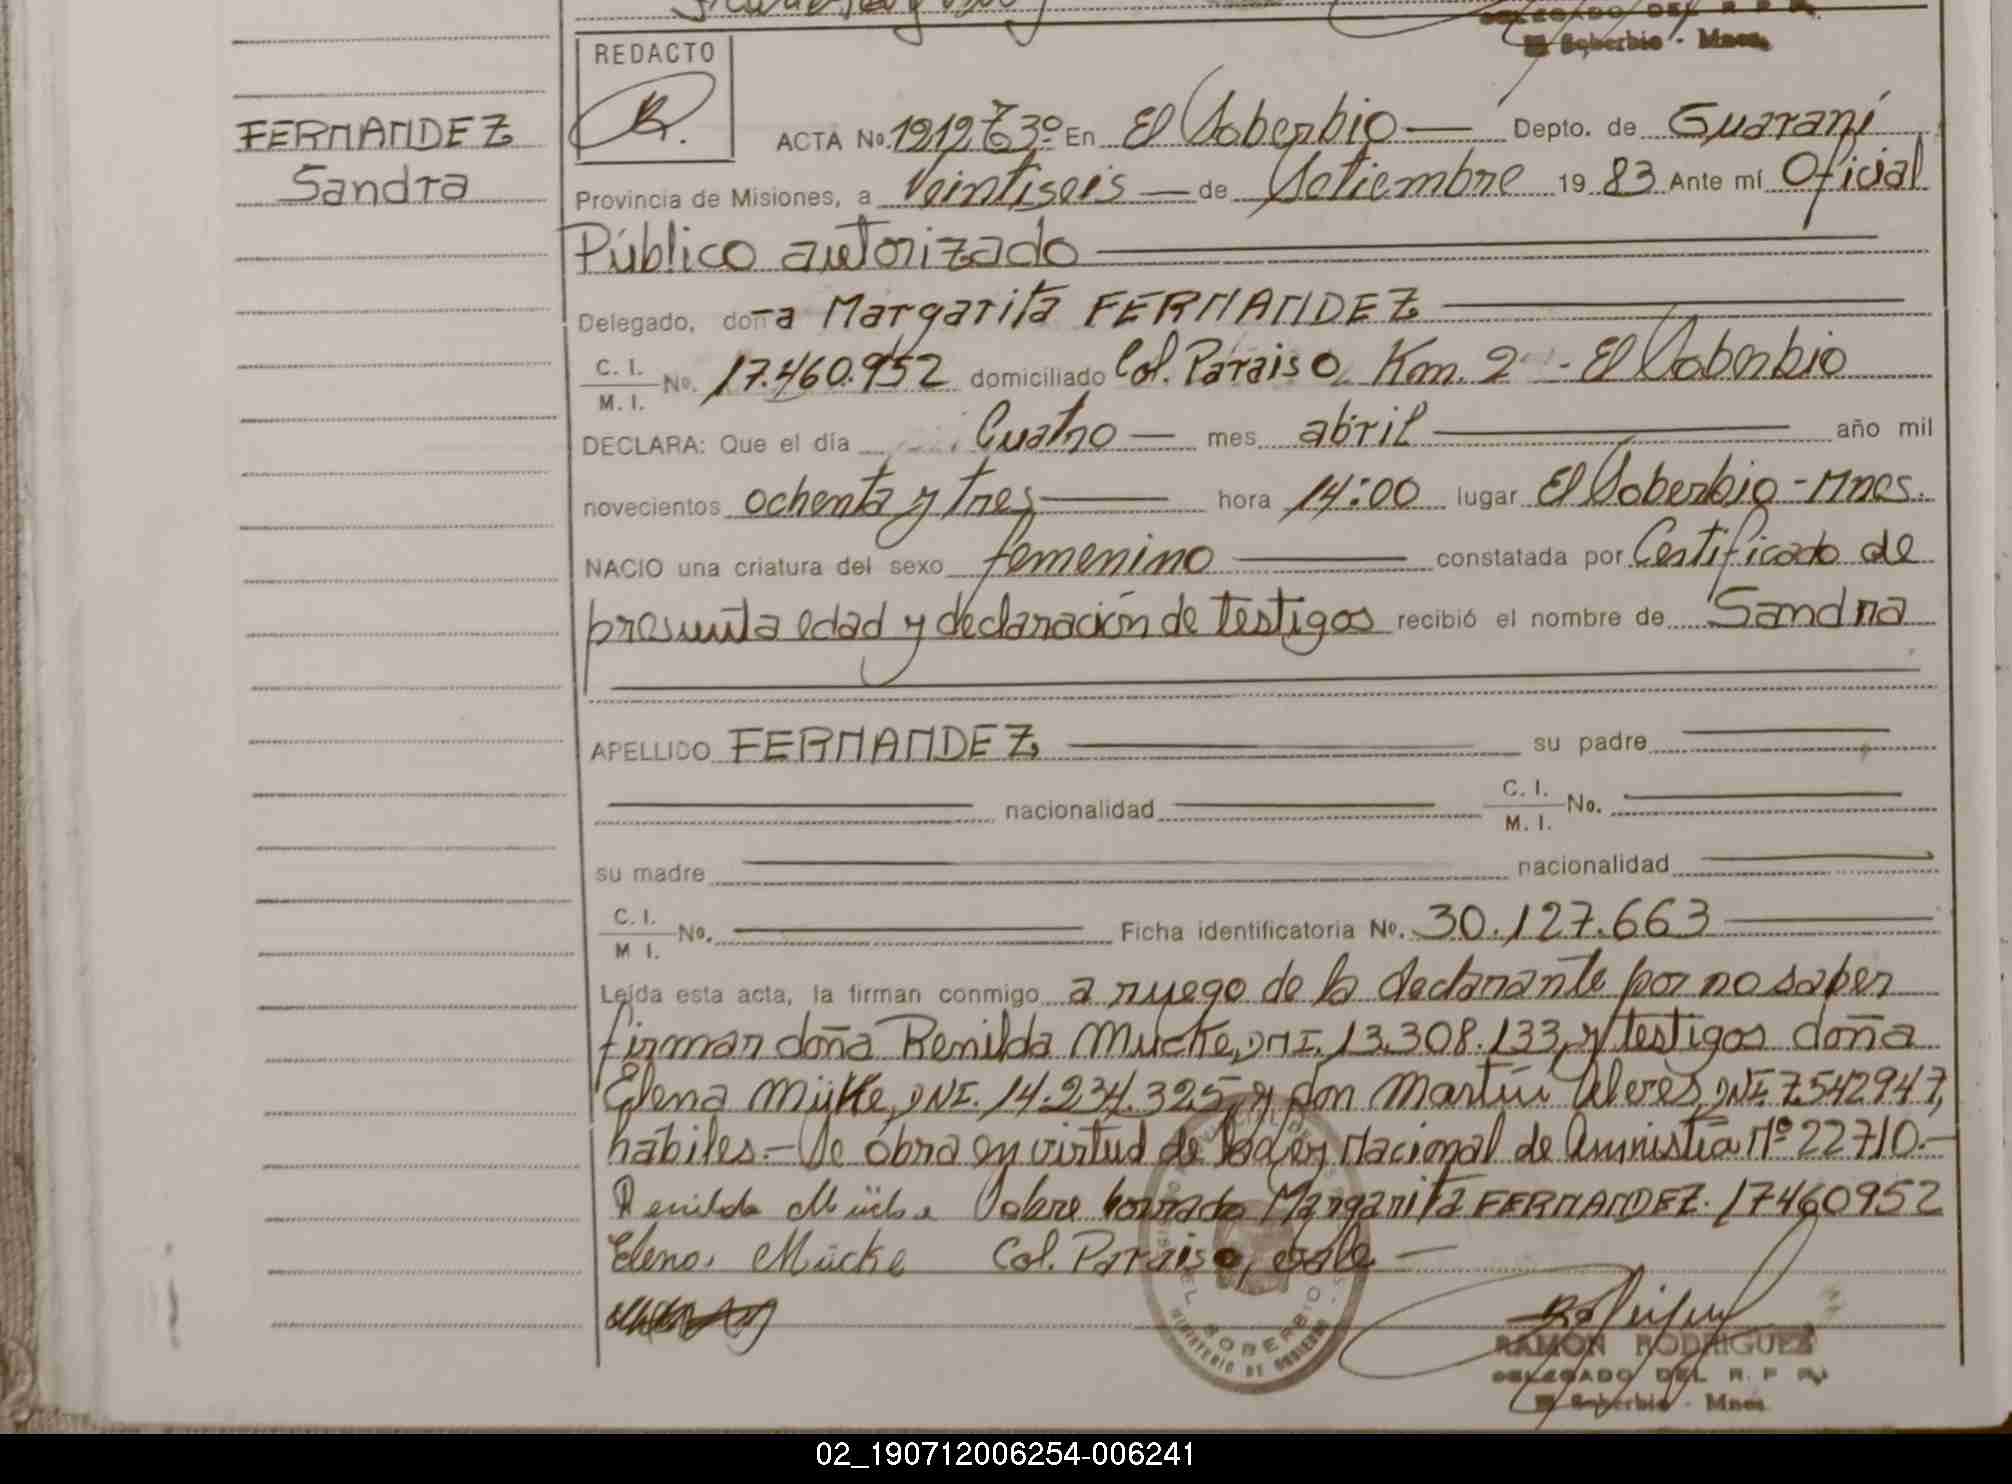 DELEGADO DEL R. P. P.
El Soberbio - Mnes.
REDACTO
FERNANDEZ
Sandra
ACTA No. 1212 T 3º En El Soberbio Depto. de Guaraní
Provincia de Misiones, a Veintiseis de Setiembre 19 83 Ante mí Oficial
Público autorizado
Delegado, doña Margarita FERNANDEZ
C. I.
M. I. No. 17.460.952 domiciliado Col. Paraiso, Km. 2 - El Soberbio
DECLARA: Que el día Cuatro mes abril año mil
novecientos ochenta y tres hora 14:00 lugar El Soberbio - Mnes.
NACIO una criatura del sexo femenino constatada por Certificado de
presunta edad y declaración de testigos recibió el nombre de Sandra
APELLIDO FERNANDEZ su padre
nacionalidad C. I.
M. I. No.
su madre nacionalidad
C. I.
M I. No. Ficha identificatoria No. 30.127.663
Leída esta acta, la firman conmigo a ruego de la declarante por no saber
firmar doña Renilda Mucke, DNI. 13.308.133, y testigos doña
Elena Müke, DNI. 14.234.325, y don Martín Alves, DNI 7.542947,
hábiles.- Se obra en virtud de la Ley Nacional de Amnistía Nº 22710.-
Renilda Mücke Sobre borrado Margarita FERNANDEZ. 17460952
Elena Mücke Col. Paraiso, vale
EL SOBERBIO
MINISTERIO DE GOBIERNO
RAMON RODRIGUEZ
DELEGADO DEL R. P. P.
El Soberbio - Mnes.
02_190712006254-006241